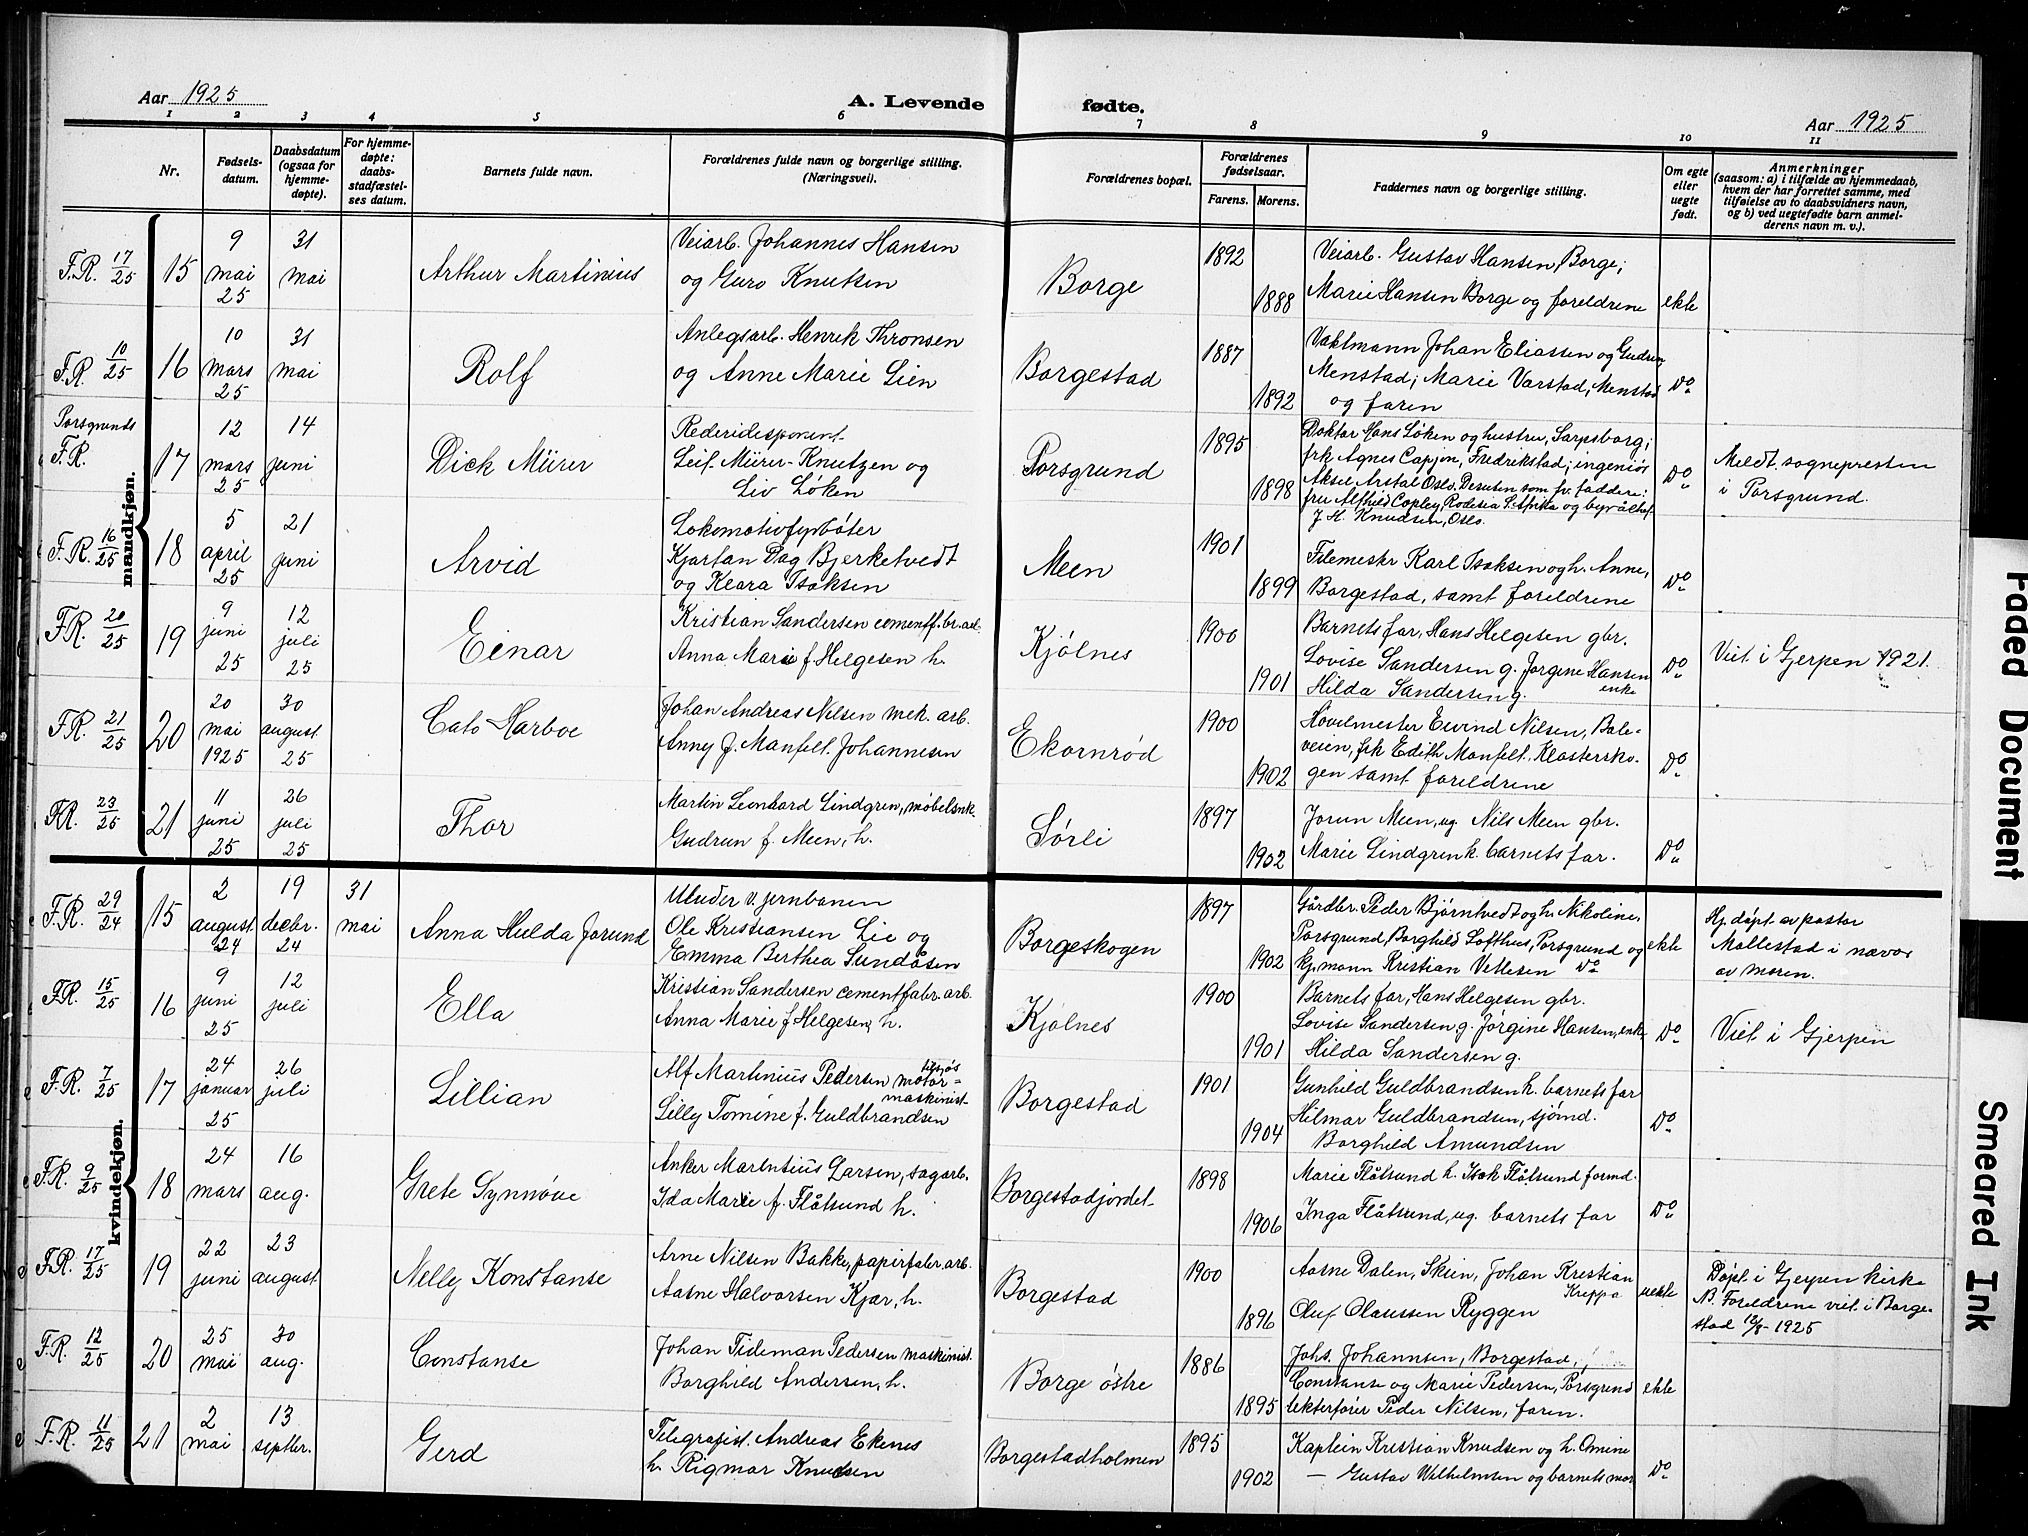 Aar 1925
A. Levende fødte.
Aar 1925
1 2 3 4 5 6 7 8 9 10 11
Nr.
Fødsels-
datum.
Daabsdatum
(ogsaa for
hjemme-
døpte).
For hjemme-
døpte:
daabs-
stadfæstel-
ses datum.
Barnets fulde navn.
Forældrenes fulde navn og borgerlige stilling.
(Næringsvei).
Forældrenes bopæl.
Forældrenes
fødselsaar.
Farens. Morens.
Faddernes navn og borgerlige stilling.
Om egte
eller
uegte
født.
Anmerkninger
(saasom: a) i tilfælde av hjemmedaab,
hvem der har forrettet samme, med
tilføielse av to daabsvidners navn,
og b) ved uegtefødte barn anmel-
derens navn m. v.).
mandkjøn.
F.R. 17/25
15
9
mai
25
31
mai
Arthur Martinius
Veiarb. Johannes Hansen
og Guro Knutsen
Borge
1892
1888
Veiarb. Gustav Hansen, Borge;
Marie Hansen Borge og foreldrene
ekte
F.R. 10/25
16
10
mars
25
31
mai
Rolf
Anlegsarb. Henrik Thronsen
og Anne Marie Lien
Borgestad
1887
1892
Vaktmann Johan Eliassen og Gudrun
Menstad; Marie Varstad, Menstad
og faren
Do
Porsgrunds
F.R.
17
12
mars
25
14
juni
Dick Mürer
Rederidisponent
Leif Mürer-Knutzen og
Liv Løken
Porsgrund
1895
1898
Doktor Hans Løken og hustru, Sarpsborg;
frk Agnes Capjon, Fredrikstad; ingeniør
Aksel Arstal Oslo. Desuten som fv. faddere:
fru Alfhild Copley, Rodesia S. Afrika og byråchef
J. H. Knudsen, Oslo.
Do
Meldt sognepresten
i Porsgrund.
F.R. 16/25
18
5
april
25
21
juni
Arvid
Lokomotivfyrbøter
Kjartan Dag Bjerketvedt
og Klara Isaksen
Meen
1901
1899
Filemestr Karl Isaksen og h. Anne,
Borgestad, samt foreldrene
Do
F.R. 20/25
19
9
juni
25
12
juli
25
Einar
Kristian Sandersen cementf.br.arb.
Anna Marie f Helgesen h.
Kjølnes
1900
1901
Barnets far, Hans Helgesen gbr.
Lovise Sandersen g. Jørgine Hansen
enke
Hilda Sandersen g.
Do
Viet i Gjerpen 1921.
F.R. 21/25
20
20
mai
1925
30
august
25
Cato Harboe
Johan Andreas Nilsen mek. arb.
Anny f. Manfelt Johannesen
Ekornrød
1900
1902
Høvelmester Eivind Nilsen, Bole-
veien, frk Edith Manfelt, Klostersko-
gen samt foreldrene
Do
F.R. 23/25
21
11
juni
25
26
juli
25
Thor
Martin Leonhard Lindgren, møbelsnk.
Gudrun f. Meen, h.
Sørli
1897
1902
Jorun Meen, ug. Nils Meen gbr.
Marie Lindgren h. barnets far.
Do
kvindekjøn.
F.R. 29/24
15
2
august
24
19
decbr.
24
31
mai
Anna Hulda Jorund
Utøder v. jernbanen
Ole Kristiansen Lie og
Emma Berthea Sundåsen
Borgeskogen
1897
1902
Gårdbr. Peder Bjørntvedt og h. Nikoline,
Porsgrund, Borghild Lofthus, Porsgrund og
kjpmann Kristian Vetlesen Do
ekte
Hj.døpt av pastor
Mollestad i nævær
av moren.
F.R. 15/25
16
9
juni
25
12
juli
Ella
Kristian Sandersen cementfabr. arb.
Anna Marie f Helgesen, h.
Kjølnes
1900
1901
Barnets far, Hans Helgesen gbr.
Lovise Sandersen g. Jørgine Hansen, enke
Hilda Sandersen g.
Do
Viet i Gjerpen
F.R. 7/25
17
24
januar
25
26
juli
Lillian
Alf Martinius Pedersen motor-
maskinist
Lilly Tomine f. Guldbrandsen
Borgestad
1901
1904
Gunhild Guldbrandsen h. barnets far
Hilmar Guldbrandsen, sjømd.
Borghild Amundsen
Do
F.R. 9/25
18
24
mars
16
aug.
Grete Synnøve
Anker Marentius Larsen, sagarb.
Ida Marie f. Flåtsund h.
Borgestadjordet
1898
1906
Marie Flåtsund h. Isak Flåtsund formd.
Inga Flåtsund, ug. barnets far
Do
F.R. 17/25
19
22
juni
23
august
Nelly Konstanse
Arne Nilsen Bakke, papirfabr. arb.
Aasne Halvorsen Kjær, h.
Borgestad
1900
1896
Aasne Dalen, Skien, Johan Kristian
Kreppa
Oluf Olaussen Ryggen
uekte
Døpt i Gjerpen kirke
N. Foreldrene viet i Borge-
stad 12/8-1925
F.R. 12/25
20
25
mai
30
aug.
Constanse
Johan Tideman Pedersen maskinist.
Borghild Andersen, h.
Borge østre
1886
1895
Johs. Johannsen, Borgestad,
Constanse og Marie Pedersen, Porsgrund
lekterfører Peder Nilsen, faren.
ekte
F.R. 11/25
21
2
mai
13
septbr.
Gerd
Telegrafist. Andreas Ekenes
h. Rigmor Knudsen
Borgestadholmen
1895
1902
Kaptein Kristian Knudsen og h. Omine
— Gustav Wilhelmsen og barnets mor
Do
Faded Document
Smeared Ink